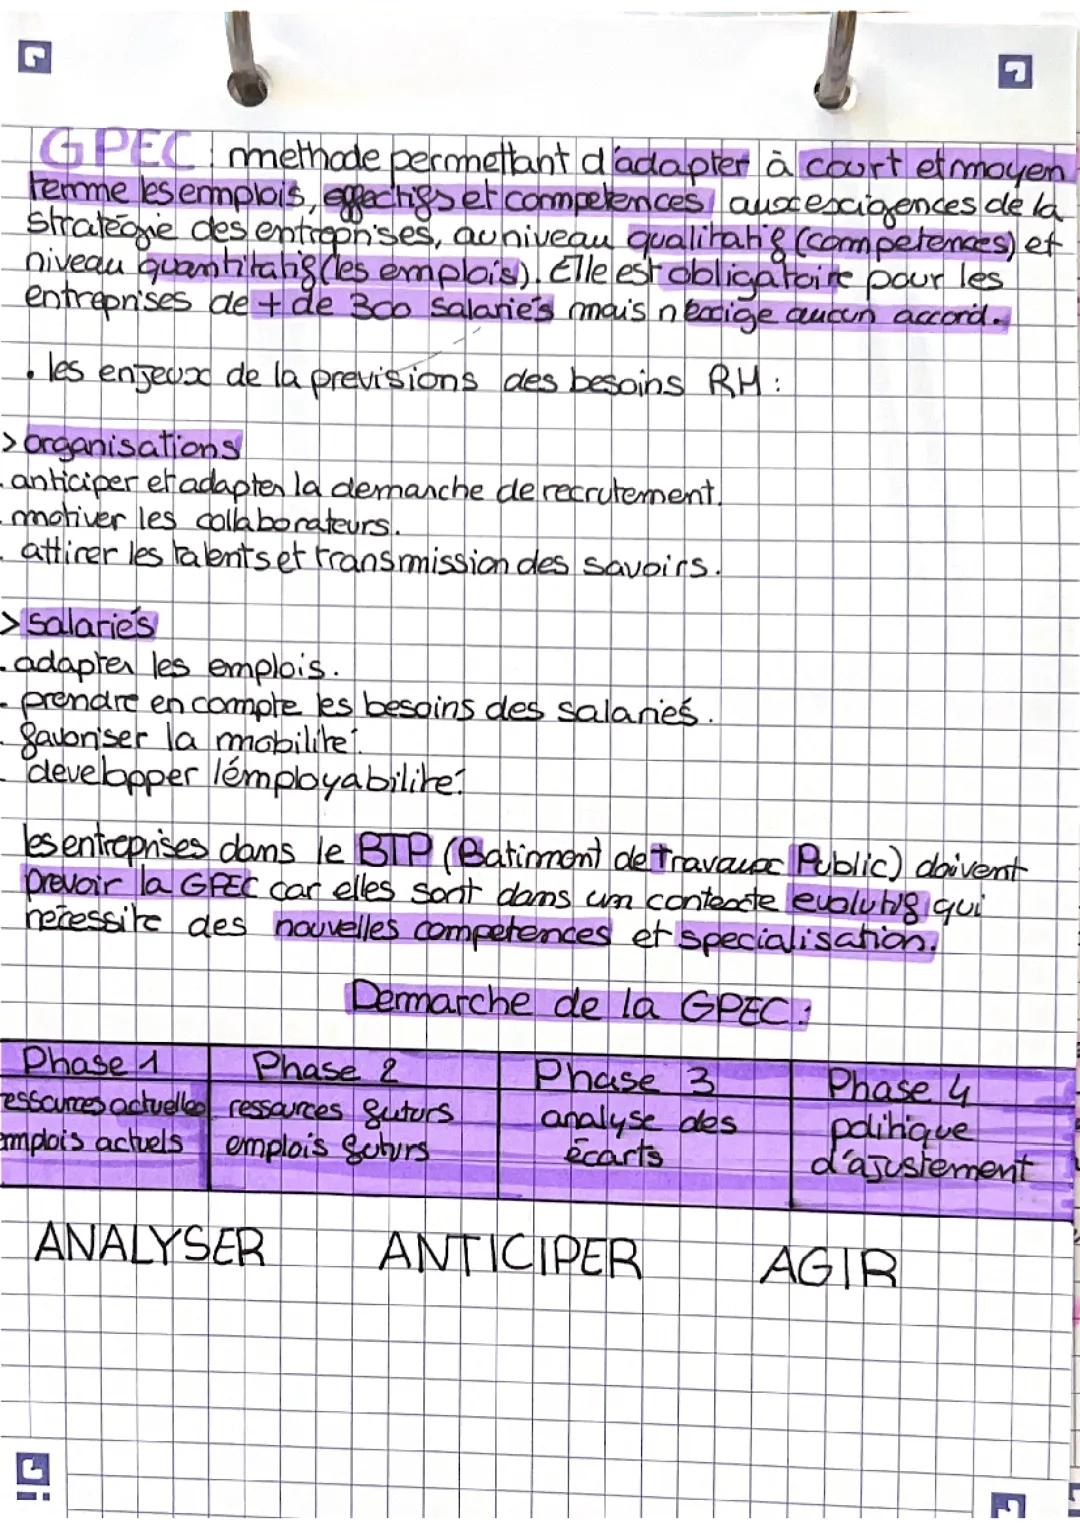 GPEC : methode permettant d'adapter à court et moyen
terme les emplois, effectifs et competences aux exigences de la
stratégie des entreprises, au niveau qualitatif (competences) et
niveau quantitatif (les emplois). Elle est obligatoire pour les
entreprises de + de 300 salariés mais n'éxige aucun accord.
. les enjeux de la previsions des besoins RH :
> organisations
. anticiper et adapter la demarche de recrutement.
. motiver les collaborateurs.
. attirer les talents et transmission des savoirs.
> salariés
. adapter les emplois.
. prendre en compte les besoins des salariés.
. favoriser la mobilité.
. developper l'émployabilité.
les entreprises dans le BTP (Batimont de Travaux Public) doivent
prevoir la GPEC car elles sont dans un contexte evolutif qui
nécessite des nouvelles competences et specialisation.
Demarche de la GPEC :
Phase 1 Phase 2 Phase 3 Phase 4
ressources actuelles ressources futurs analyse des politique
emplois actuels emplois futurs écarts d'ajustement
ANALYSER ANTICIPER AGIR